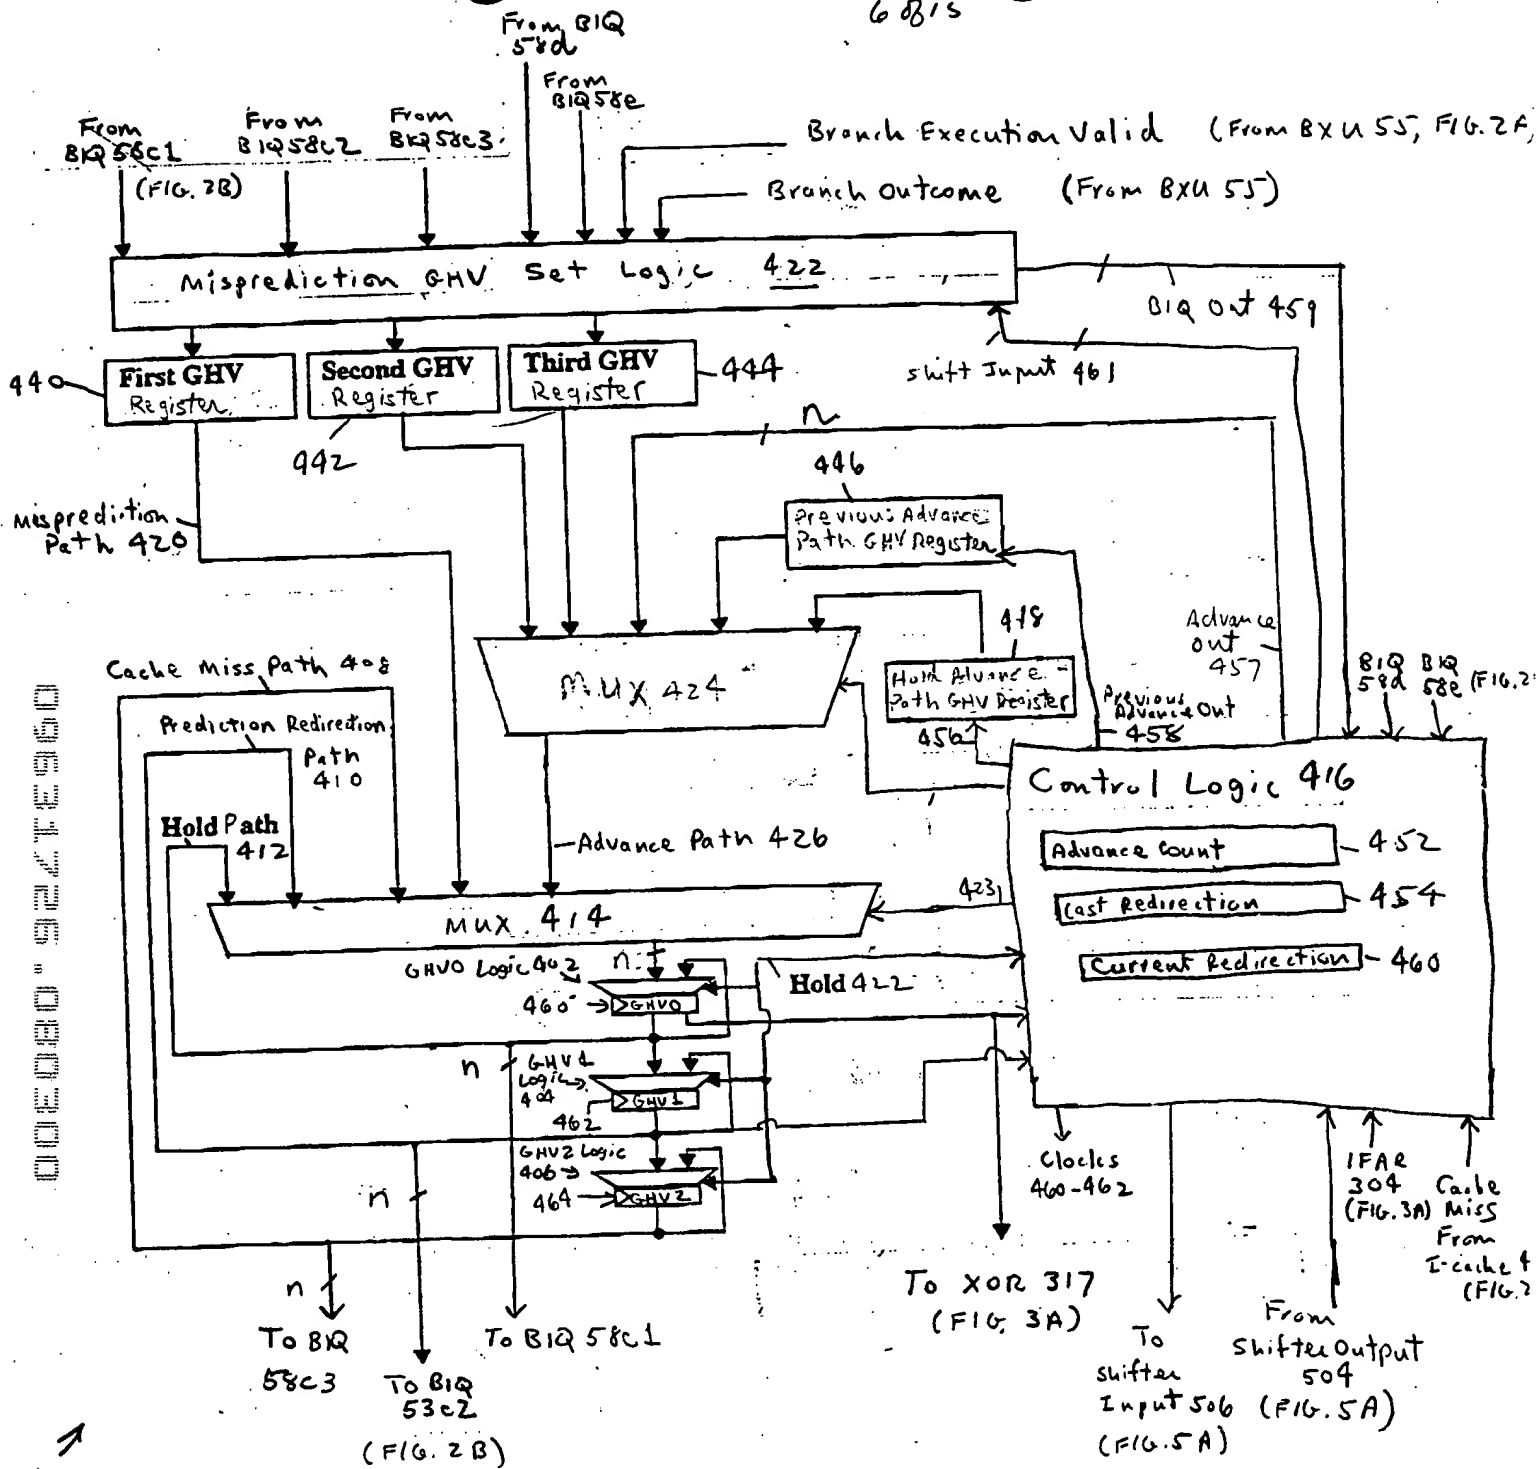 6 of 15
From BIQ
58d
From
BIQ58e
From
BIQ58c1
(FIG. 2B)
From
BIQ58c2
From
BIQ58c3
Branch Execution Valid (From BXU 55, FIG. 2A,
Branch Outcome (From BXU 55)
Misprediction GHV Set Logic 422
BIQ Out 459
Shift Input 461
440
First GHV
Register
Second GHV
Register
Third GHV
Register
444
442
n
446
Previous Advance
Path GHV Register
Mispredition
Path 420
418
Hold Advance
Path GHV Register
456
Previous
Advance Out
458
Advance
out
457
BIQ
58d
BIQ
58e
(FIG. 2
MUX 424
Cache Miss Path 408
Prediction Redirection
Path
410
Hold Path
412
Advance Path 426
Control Logic 416
Advance Count
452
Last Redirection
454
Current Redirection
460
423
MUX 414
n
GHV0 Logic 402
460
GHV0
Hold 422
n
GHV1
Logic
404
GHV1
462
GHV2 Logic
406
464
GHV2
n
n
Clocks
460-462
IFAR
304
(FIG. 3A)
Cache
Miss
From
I-cache 4
(FIG. 2
To XOR 317
(FIG. 3A)
To
Shifter
Input 506
(FIG. 5A)
From
Shifter Output
504
(FIG. 5A)
To BIQ
58c3
To BIQ
53c2
(FIG. 2B)
To BIQ 58c1
09631726.080300